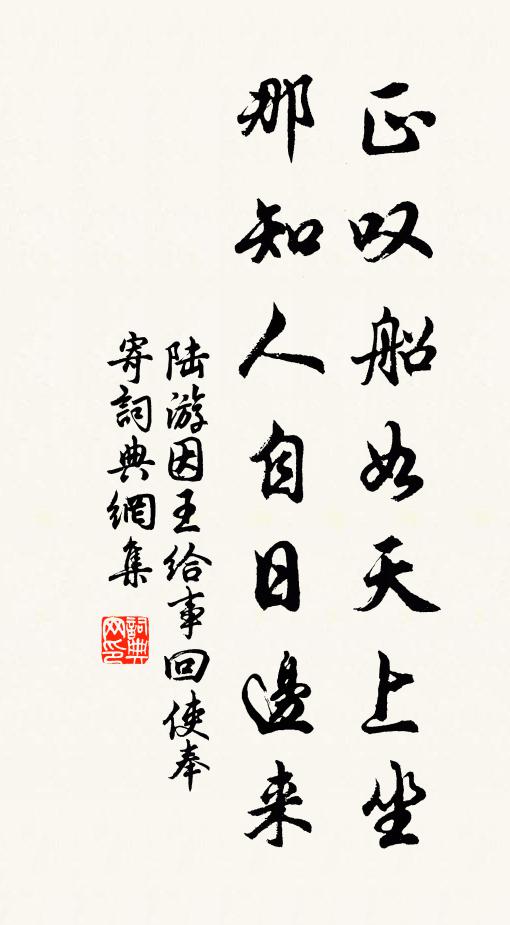 正叹船如天上坐
那知人自日邊来
陆游因王给事回使奉
寄詞典網集
詞典网印